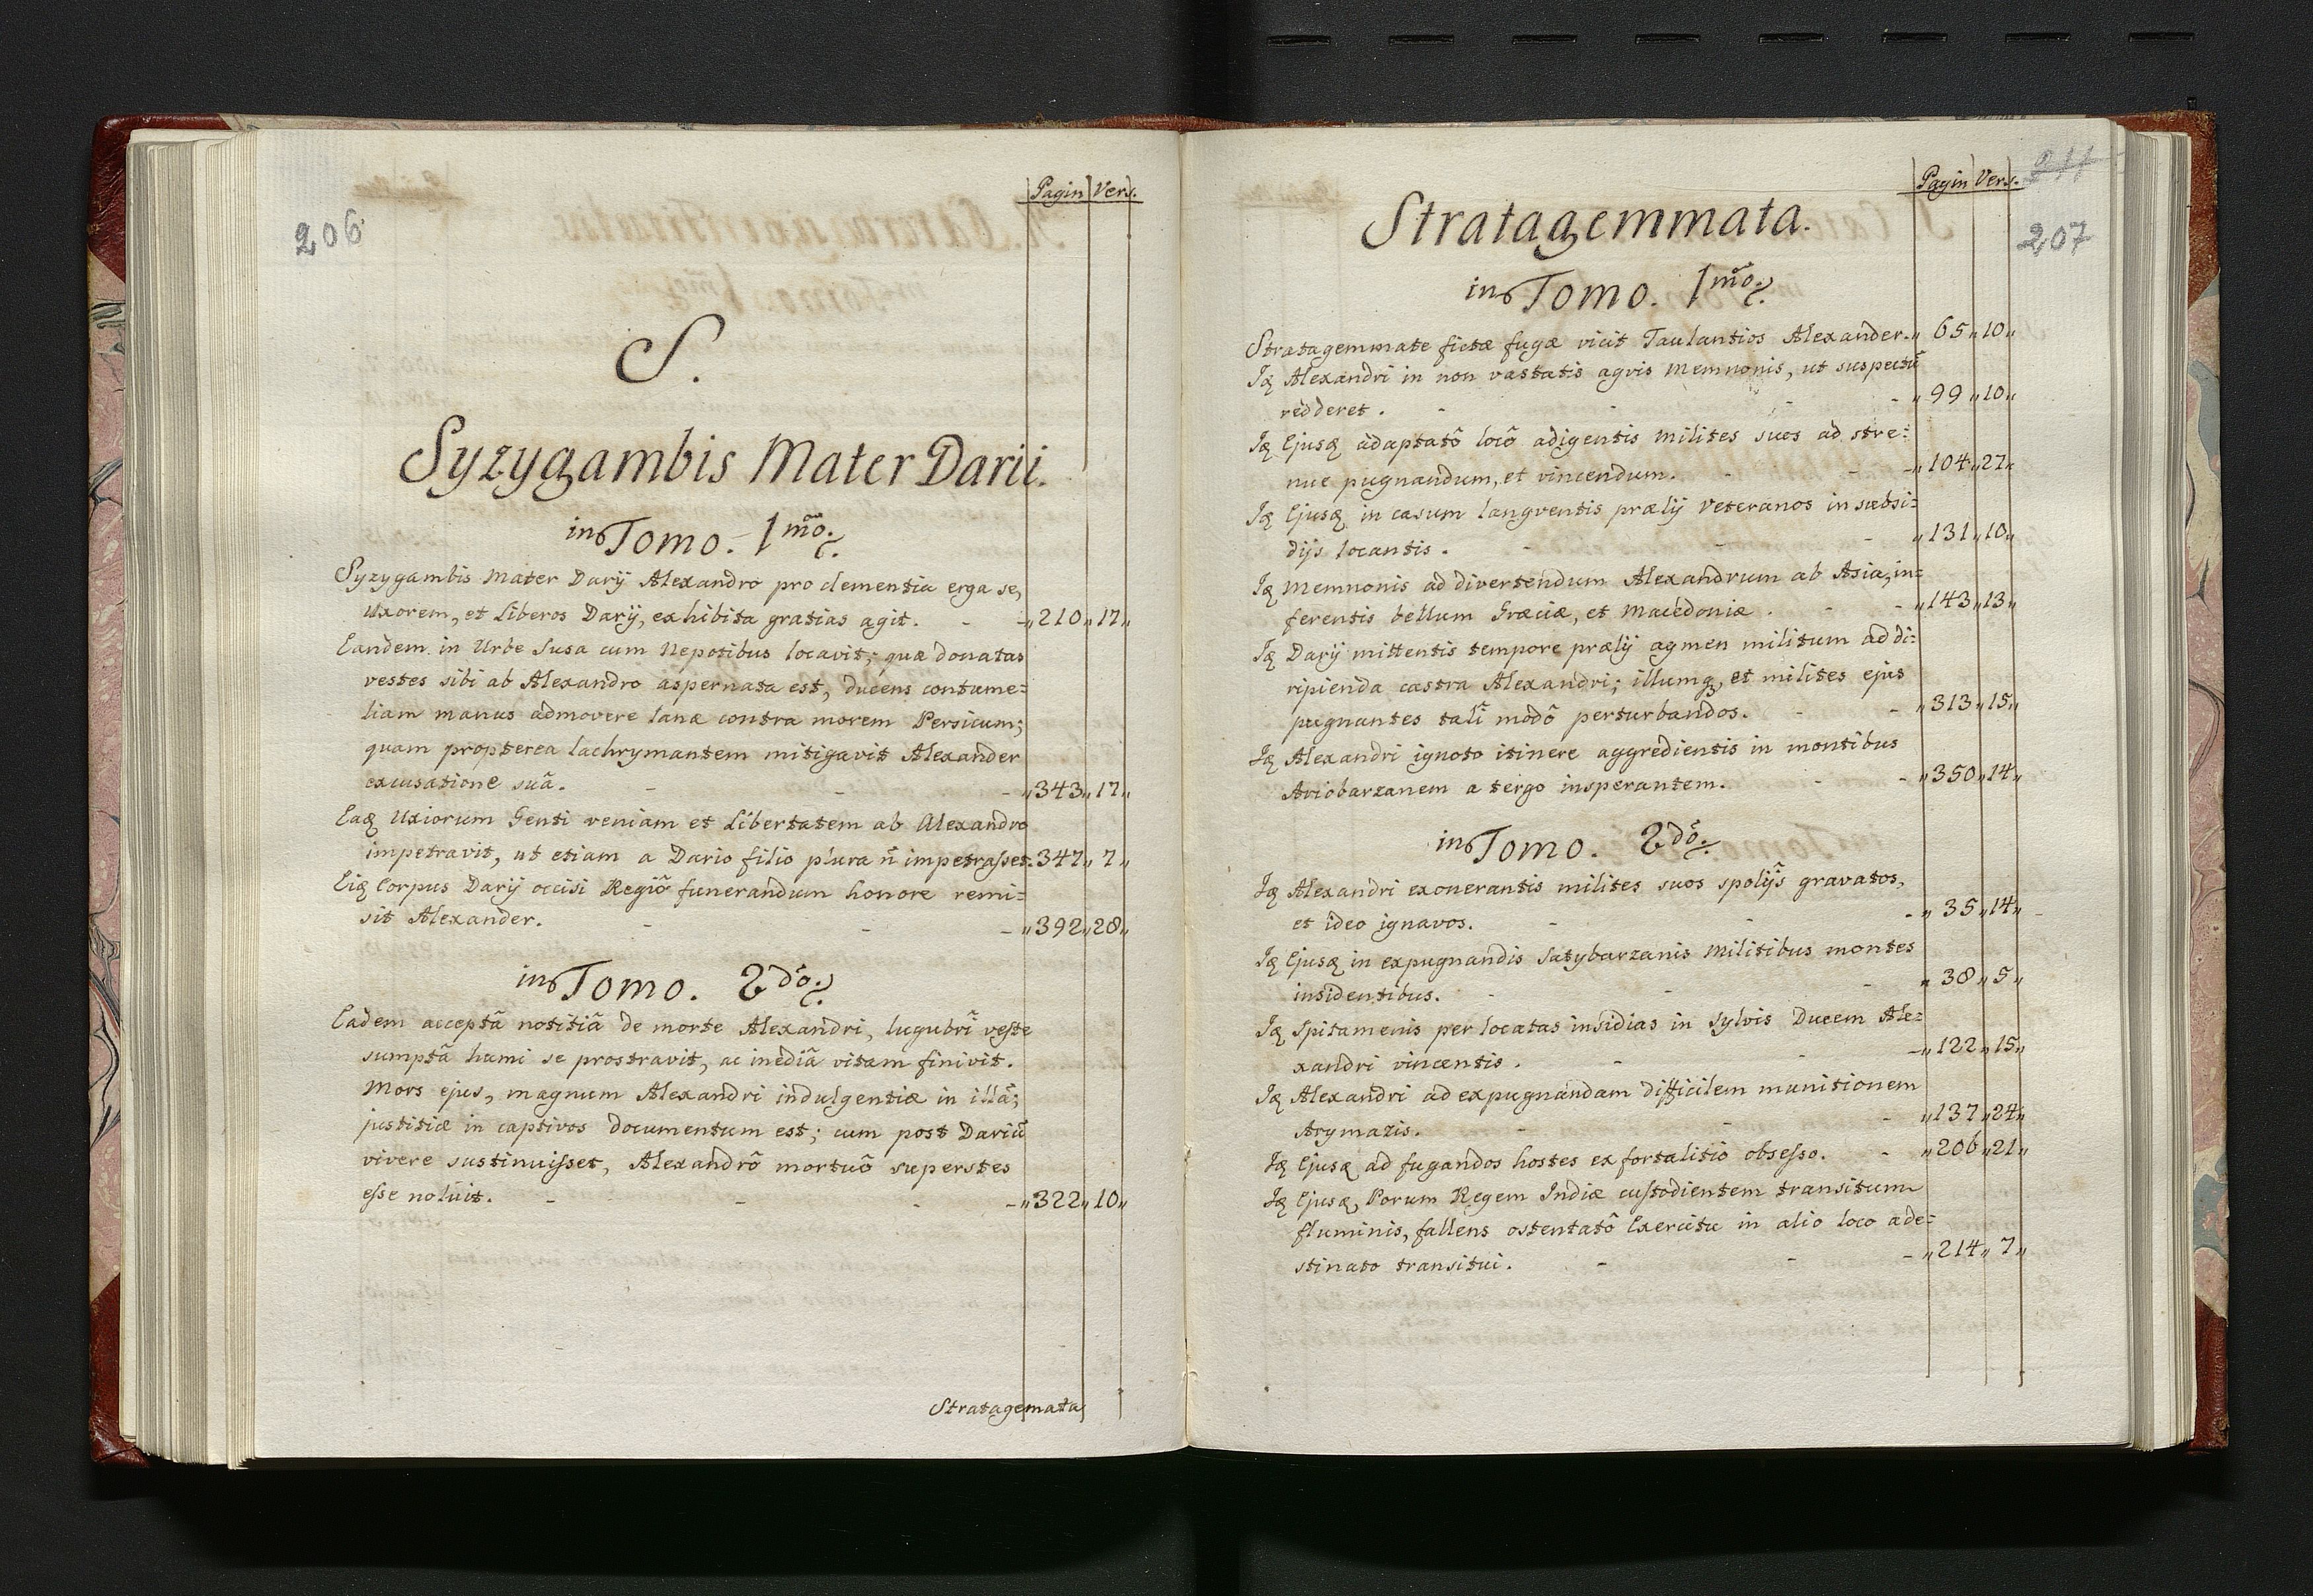 Pagin Vers.
206
S.
Syzygambis Mater Darii.
in Tomo. 1mõ.
Syzygambis Mater Darÿ Alexandro pro clementia erga se,
Uxorem, et Liberos Darÿ, exhibita gratias agit. - -„210„17„
Eandem in Urbe Susa cum Nepotibus locavit; quæ donatas
vestes sibi ab Alexandro aspernata est, ducens contume=
liam manus admovere lanæ contra morem Persicum;
quam propterea lachrymantem mitigavit Alexander
excusatione suâ. - - -„343„17„
Eaꝫ Uxiorum Genti veniam et Libertatem ab Alexandro
impetravit, ut etiam a Dario filio plura ñ impetraſset.347„7„
Eiꝫ Corpus Darÿ occisi Regiô funerandum honore remi=
sit Alexander. - - -„392„28„
in Tomo. 2dõ.
Eadem acceptâ notitiâ de morte Alexandri, lugubrî veſte
sumptâ humi se prostravit, ac inediâ vitam finivit.
Mors ejus, magnum Alexandri indulgentiæ in illâ;
justitiæ in captivos documentum est; cum post Dariũ
vivere sustinuiſset, Alexandrô mortuô superstes
eſse noluit. - - - -„322„10„
Stratagemata
Pagin Vers.
211
207
Stratagemmata.
in Tomo. 1mõ.
Stratagemmate fictæ fugæ vicit Taulantios Alexander.„ 65„10„
Iꝫ Alexandri in non vastatis agris Memnonis, ut suspectũ
redderet. - - - -„99„10„
Iꝫ Ejusꝫ adaptatô locô adigentis milites suos ad stre=
nue pugnandum, et vincendum. - - -„104„27„
Iꝫ Ejusꝫ in casum langventis prælÿ Veteranos in subsi=
dÿs locantis. - - - „131„10„
Iꝫ Memnonis ad divertendum Alexandrum ab Asia, in=
ferentis bellum Græciæ, et Macedoniæ. - -„143„13„
Iꝫ Darÿ mittentis tempore prælÿ agmen militum ad di=
ripienda castra Alexandri; illumꝗ, et milites ejus
pugnantes talî modô perturbandos. - -„313„15„
Iꝫ Alexandri ignoto itinere aggredientis in montibus
Ariobarzanem a tergo insperantem. - -„350„14„
in Tomo. 2dõ.
Iꝫ Alexandri exonerantis milites suos spolÿs gravatos,
et ideo ignavos. - - -„35„14„
Iꝫ Ejusꝫ in expugnandis Satybarzanis Militibus montes
insidentibus. - - - „38„5„
Iꝫ Spitamenis per locatas insidias in sylvis Ducem Ale=
xandri vincentis. - - -„122„15„
Iꝫ Alexandri ad expugnandam difficilem munitionem
Arymazis. - - - „137„24„
Iꝫ Ejusꝫ ad fugandos hostes ex fortalitio obseſso. - „206„21„
Iꝫ Ejusꝫ, Porum Regem Indiæ cuſtodientem transitum
fluminis, fallens ostentatô Exercitu in alio loco ade=
stinato transitui. - - -„214„7„